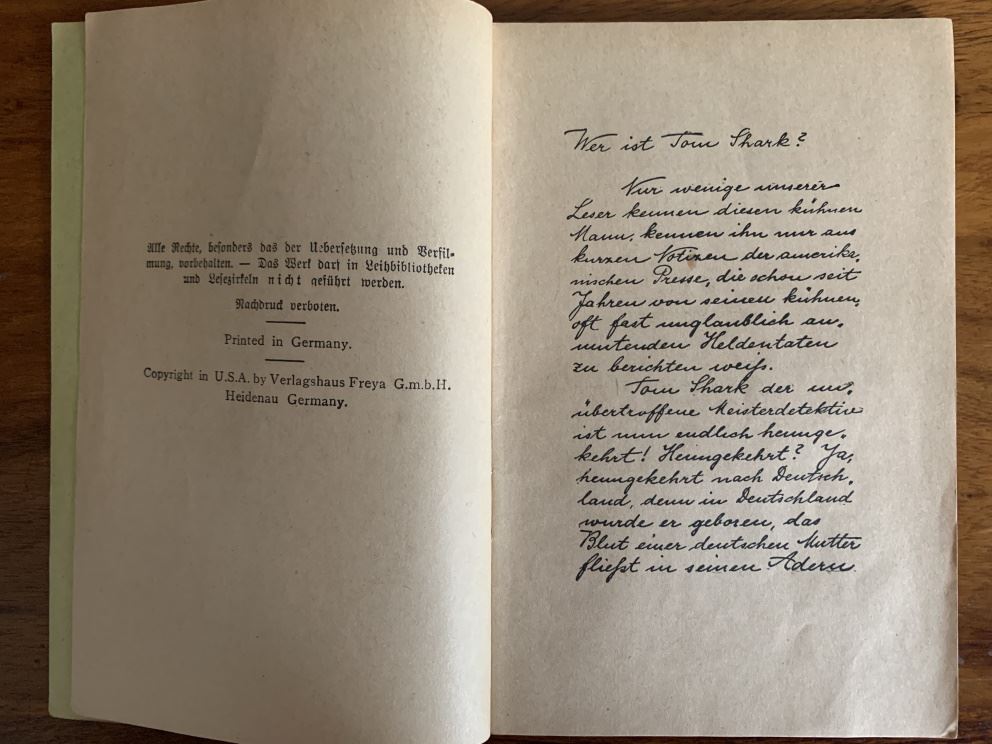 Alle Rechte, besonders das der Uebersetzung und Verfil-
mung, vorbehalten. — Das Werk darf in Leihbibliotheken
und Lesezirkeln nicht geführt werden.
Nachdruck verboten.
Printed in Germany.
Copyright in U.S.A. by Verlagshaus Freya G.m.b.H.
Heidenau Germany.
Wer ist Tom Shark?
Nur wenige unserer
Leser kennen diesen kühnen
Mann, kennen ihn nur aus
kurzen Notizen der amerika-
nischen Presse, die schon seit
Jahren von seinen kühnen,
oft fast unglaublich an-
mutenden Heldentaten
zu berichten weiß.
Tom Shark der un-
übertroffene Meisterdetektiv
ist nun endlich heimge-
kehrt! Heimgekehrt? Ja,
heimgekehrt nach Deutsch-
land, denn in Deutschland
wurde er geboren, das
Blut einer deutschen Mutter
fließt in seinen Adern.